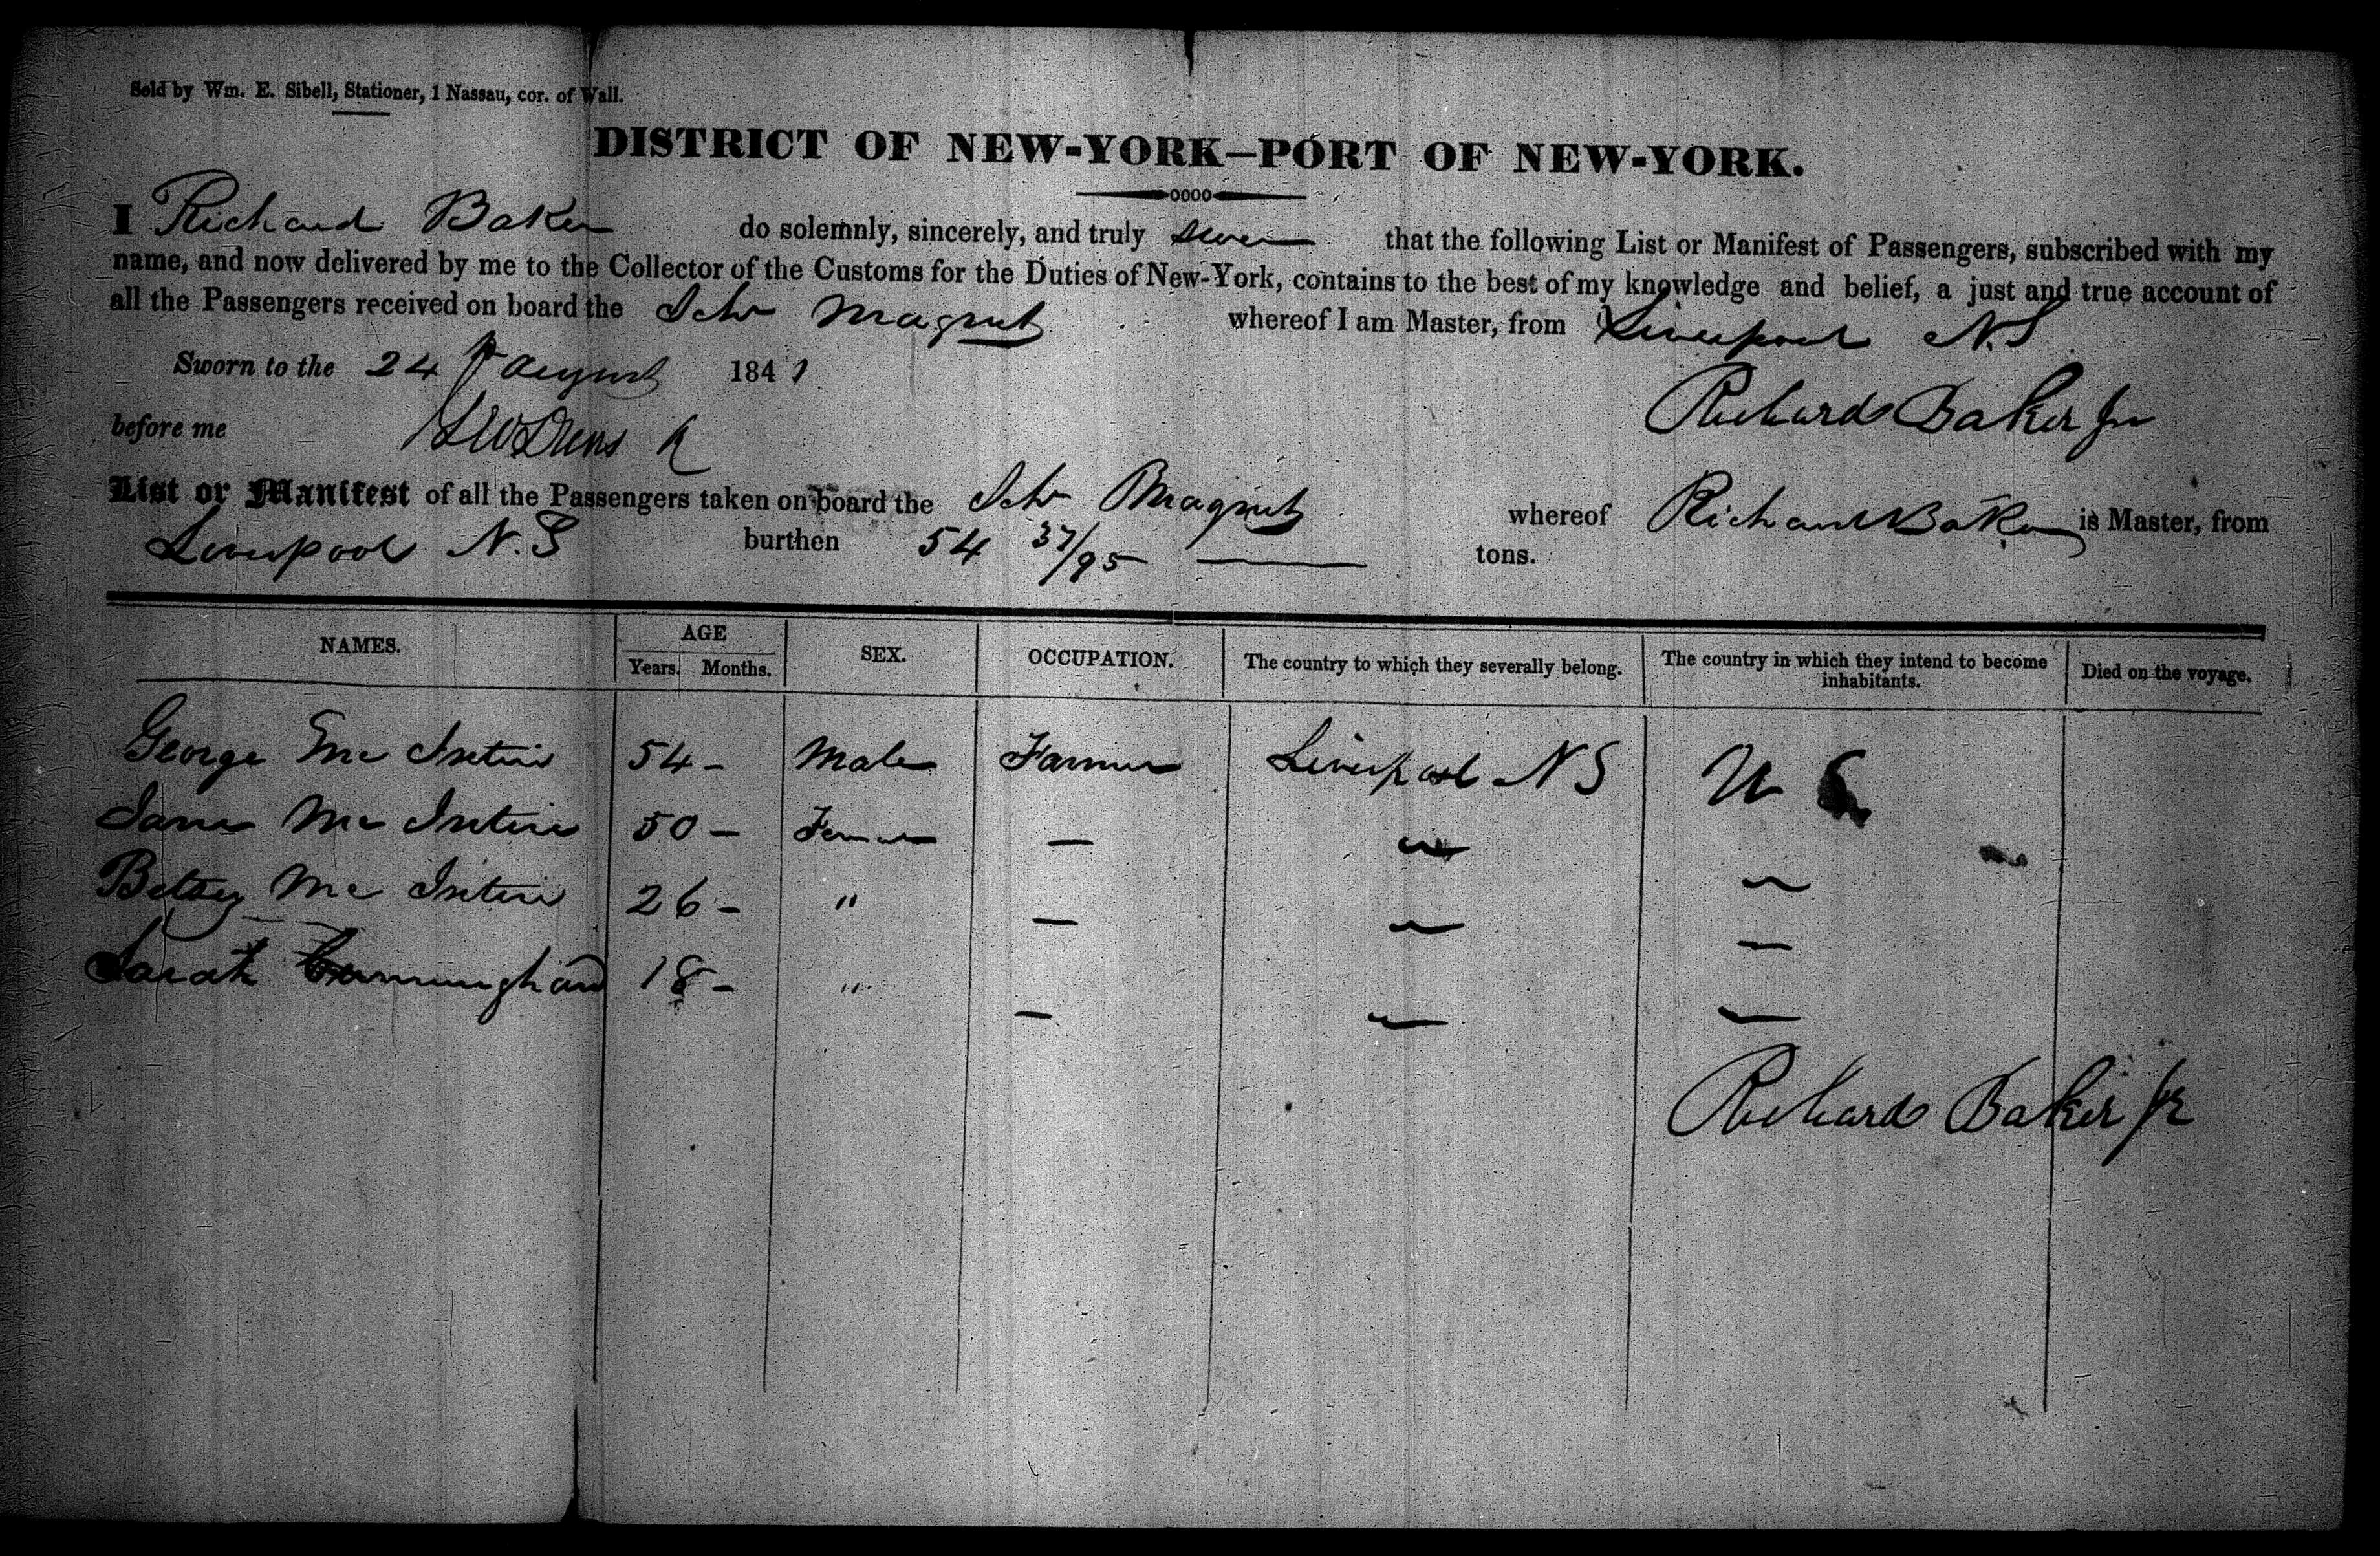 Sold by Wm. E. Sibell, Stationer, 1 Nassau, cor. of Wall.
DISTRICT OF NEW-YORK—PORT OF NEW-YORK.
I Richard Baker do solemnly, sincerely, and truly swear that the following List or Manifest of Passengers, subscribed with my
name, and now delivered by me to the Collector of the Customs for the Duties of New-York, contains to the best of my knowledge and belief, a just and true account of
all the Passengers received on board the Schr Magnet whereof I am Master, from Liverpool N.S
Sworn to the 24 August 1841
Richard Baker Jr
before me
List or Manifest of all the Passengers taken on board the Schr Magnet whereof Richard Baker is Master, from
Liverpool N.S burthen 54 37/95 tons.
NAMES. AGE Years. Months. SEX. OCCUPATION. The country to which they severally belong. The country in which they intend to become inhabitants. Died on the voyage.
George Mc Intire 54 - Male Farmer Liverpool N S U S
Jane Mc Intire 50 - Female — — —
Betsey Mc Intire 26 - " — — —
Sarah Cunningham 18 - " — — —
Richard Baker Jr